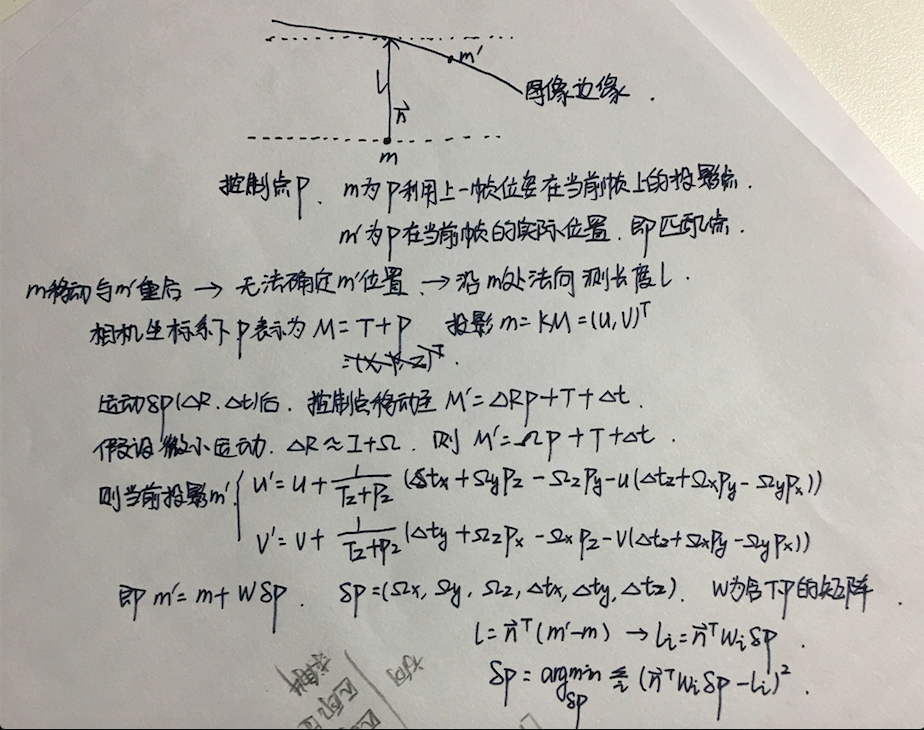 m'
l
n⃗
图像边缘.
m
控制点p. m为p利用上一帧位姿在当前帧上的投影点.
m'为p在当前帧的实际位置. 即匹配点.
m移动与m'重合 → 无法确定m'位置. → 沿m处法向测长度l.
相机坐标系下p表示为 M=T+p 投影m=KM=(u,v)ᵀ
=(X,Y,Z)ᵀ.
运动δp(ΔR.Δt)后. 控制点移动至 M'=ΔRp+T+Δt.
假设微小运动. ΔR≈I+Ω. 则 M'=Ωp+T+Δt.
则当前投影m' { u'=u+ 1/(Tz+Pz) (Δtx+ΩyPz-ΩzPy-u(Δtz+ΩxPy-ΩyPx))
v'=v+ 1/(Tz+Pz) (Δty+ΩzPx-ΩxPz-v(Δtz+ΩxPy-ΩyPx))
即 m'=m+Wδp. δp=(Ωx, Ωy, Ωz, Δtx, Δty, Δtz). W为含T.p的矩阵
l=n⃗ᵀ(m'-m) → li=n⃗ᵀWiδp.
δp=argmin_δp Σ_i (n⃗ᵀWiδp-li)².
方向